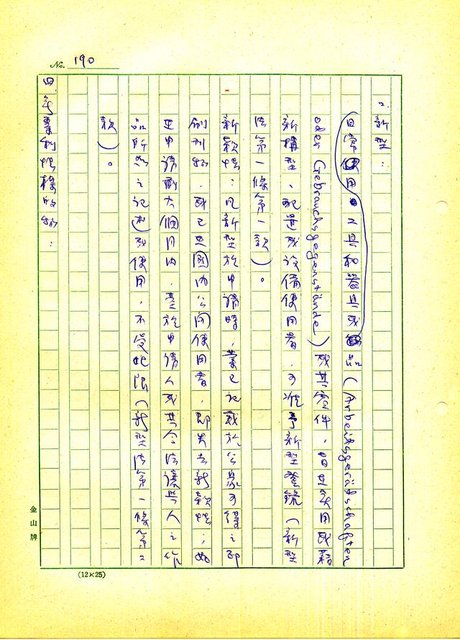 No. 190
二、新型：
(日常使用之工具和器具或物品 (Arbeitsgerätschaften
oder Gebrauchsgegenstände) 或其零件，具其效用或
新構型、配置或設備使用者，可准予新型登錄 (新型
法第一條第一款)。
新穎性：凡新型於申請時，業已記載於公眾可得之印
刷刊物，或已在國內公開使用者，即失去新穎性；如
在申請前六個月內，基於申請人或其合法讓與人之作
品所為之記述或使用，不受此限 (新型法第一條第二
款)。
四、專利性積極的：
金山牌
(12×25)